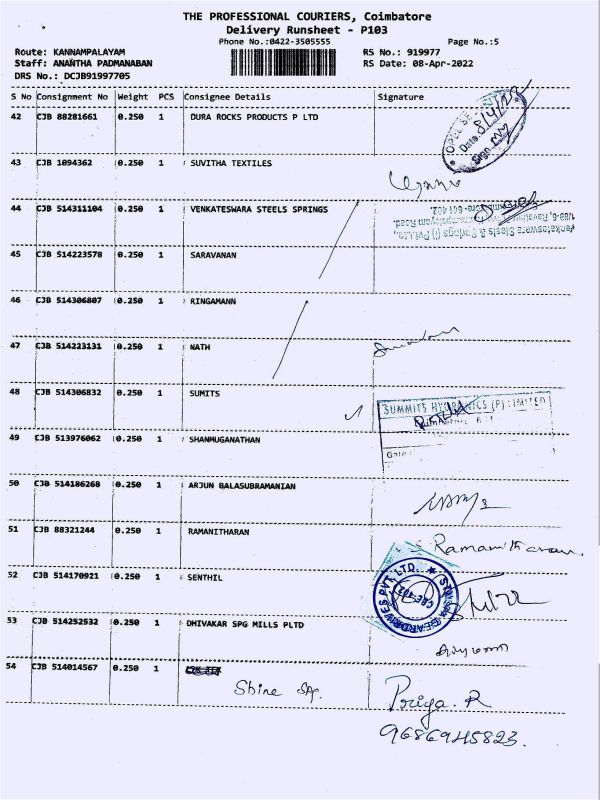 THE PROFESSIONAL COURIERS, Coimbatore
Delivery Runsheet - P103
Phone No.:0422-3505555 Page No.:5
Route: KANNAMPALAYAM RS No.: 919977
Staff: ANANTHA PADMANABAN RS Date: 08-Apr-2022
DRS No.: DCJB91997705
S No Consignment No Weight PCS Consignee Details Signature
42 CJB 88281661 0.250 1 DURA ROCKS PRODUCTS P LTD
Date: 8/4/22
Sign
43 CJB 1094362 0.250 1 SUVITHA TEXTILES
44 CJB 514311104 0.250 1 VENKATESWARA STEELS SPRINGS
Venkateswara Steels & Springs (I) Pvt Ltd.,
45 CJB 514223578 0.250 1 SARAVANAN
46 CJB 514306807 0.250 1 RINGAMANN
47 CJB 514223131 0.250 1 NATH
48 CJB 514306832 0.250 1 SUMITS
SUMMITS HYGRONICS (P) LIMITED
49 CJB 513976062 0.250 1 SHANMUGANATHAN
50 CJB 514186268 0.250 1 ARJUN BALASUBRAMANIAN
51 CJB 88321244 0.250 1 RAMANITHARAN
S Ramanitharan
52 CJB 514170921 0.250 1 SENTHIL
53 CJB 514252532 0.250 1 DHIVAKAR SPG MILLS PLTD
54 CJB 514014567 0.250 1
Shine Spg. Priya. R
9686945823.